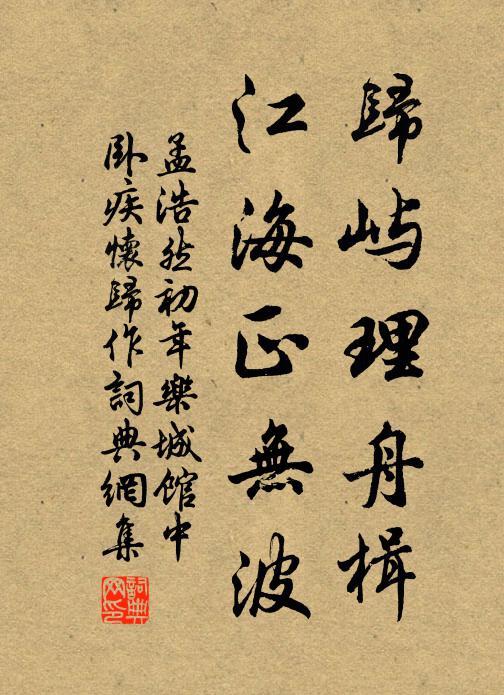 歸屿理舟楫
江海正無波
孟浩然初年樂城館中
卧疾懷歸作詞典網集
詞典网印